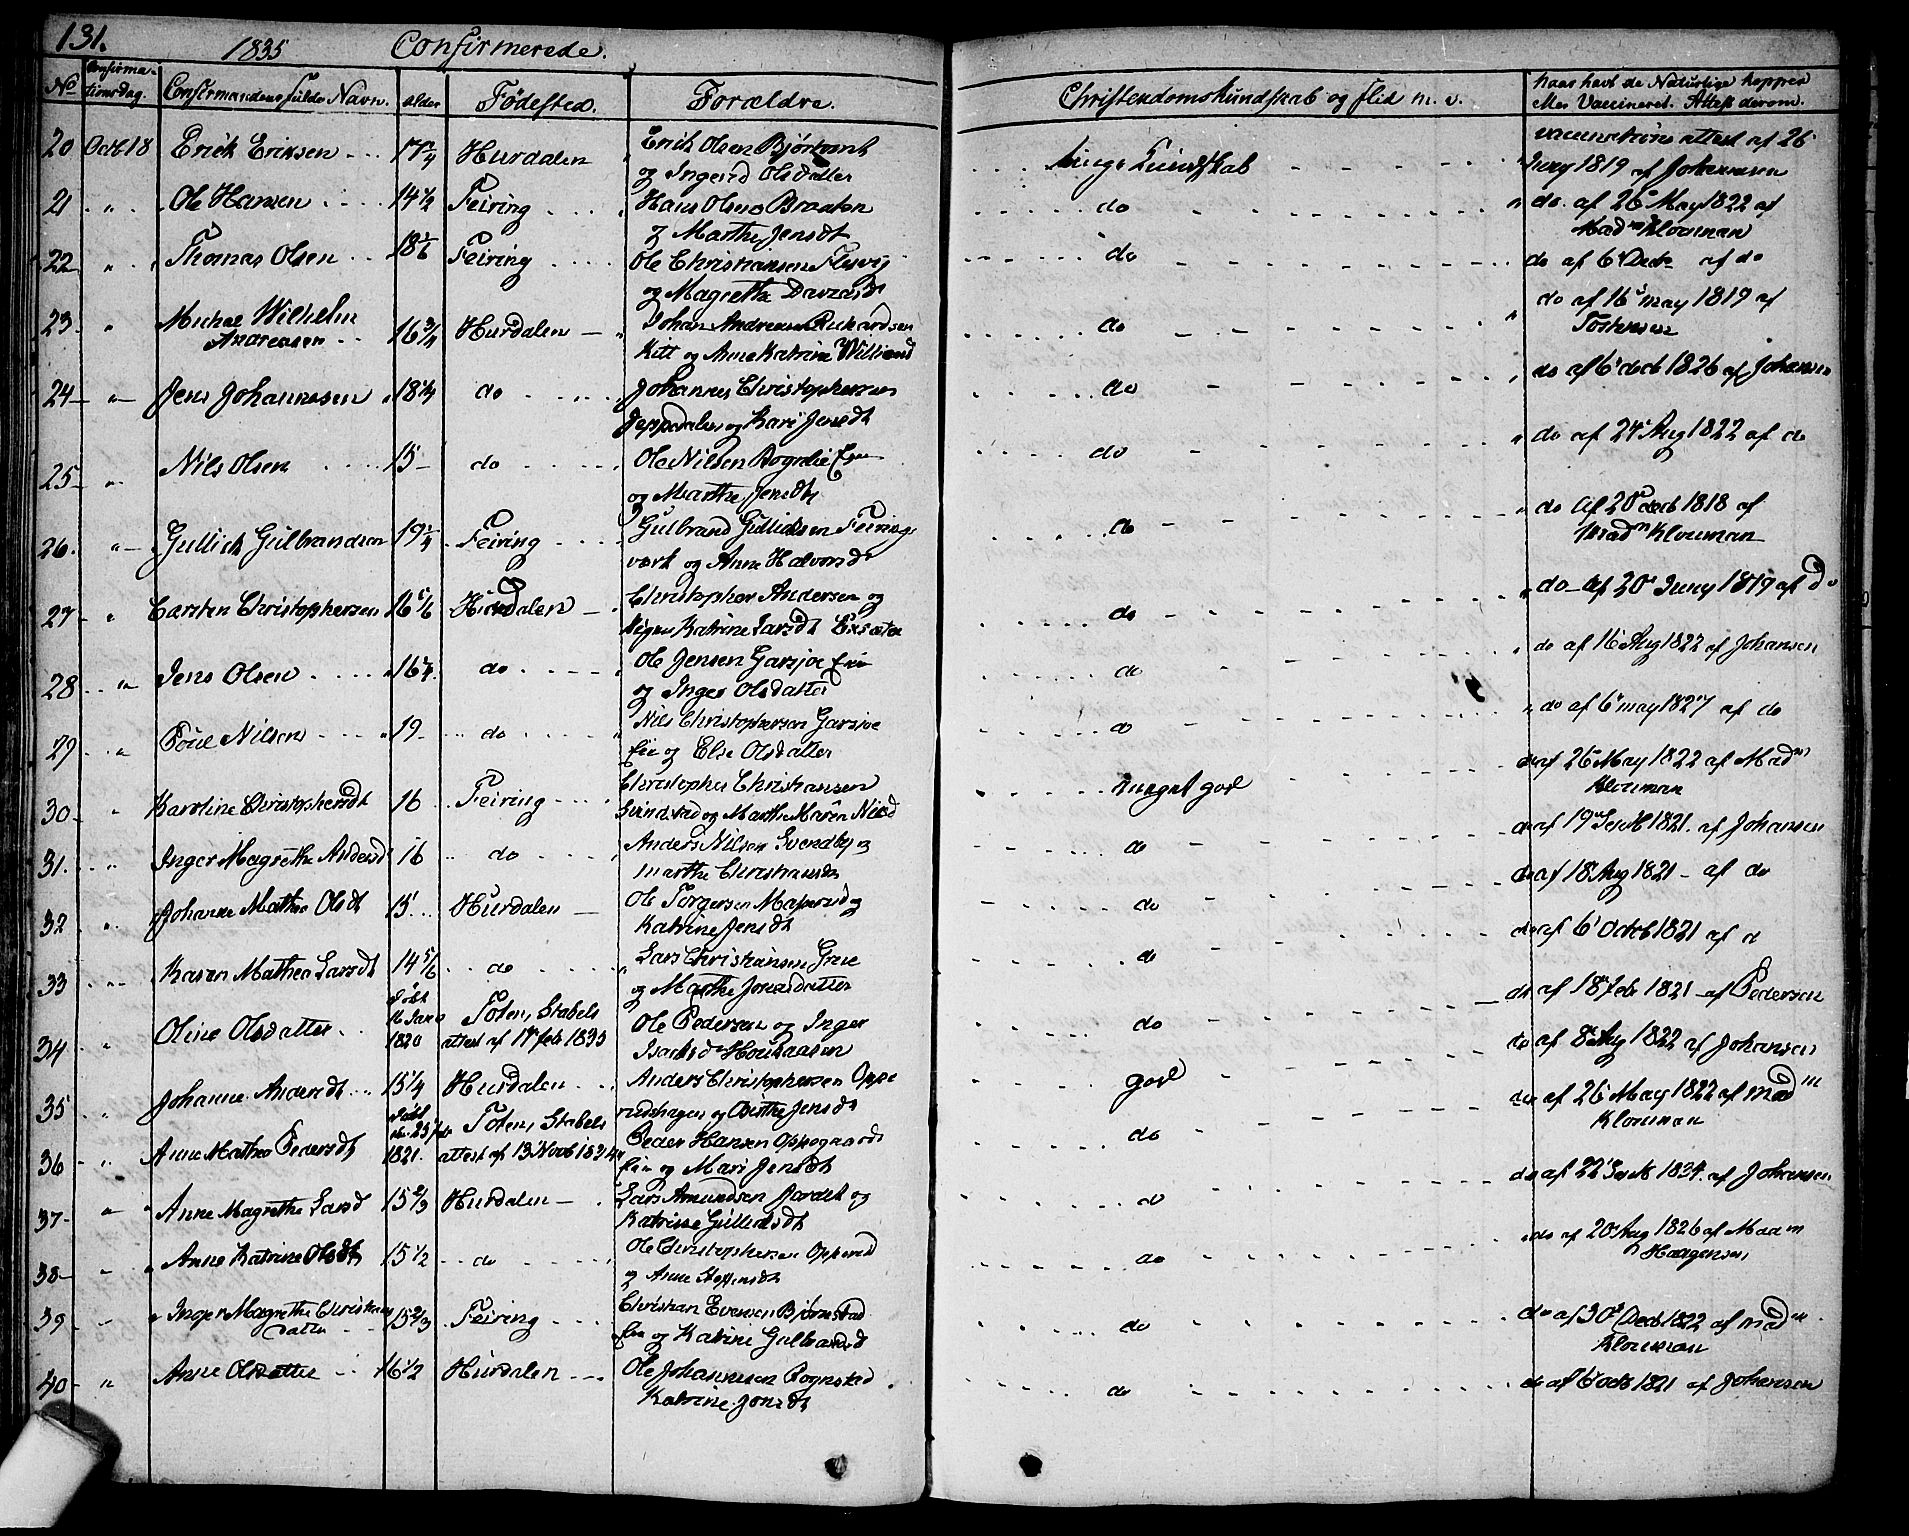 131.
1835 Confirmerede.
No Confirma- Confirmandens fulde Navn. alder Fødested. Forældre. Christendomskundskab og flid m. v. haar havt de Naturlige kopper
tionsdag. eller Vaccineret. Attest derom.
20 Octb 18 Erick Eriksen 17 1/4 Hurdalen Erick Olsen
og Ingered Olsdatter Kundskab vaccinations attest af 26
Juny 1819 af Johannesen
21 " Ole Hansen 14 1/2 Feiring Hans Olsen Braaten do do af 26 May 1822 af
og Marthe Jensdt Madm Klouman
22 " Thomas Olsen 18 1/6 Feiring Ole Christiansen do do af 6 af do
og Magrethe
23 " Wilhelm 16 3/4 Hurdalen Johan Andreas Richardsen do do af 16 may 1819 af
Andreasen Kitt og Anne Katrine
24 " Jens Johannesen 18 1/4 do Johannes Christophersen do do af 6 octb 1826 af Johansen
og Kari Jensdt
25 " Nils Olsen 15 do Ole Nilsen Eie do do af 24 Aug 1822 af do
og Marthe Jensdt
26. " Gullick Gulbrandsen 19 1/4 Feiring Gulbrand Gullicksen Feirings do do af 20 octb 1818 af
værk og Anne Halvorsdt Madm Klouman
27 " Carsten Christophersen 16 5/6 Hurdalen Christopher Andersen og do do af 20 Juny 1819 af do
Katrine Larsdt
28 " Jens Olsen 16 1/4 do Ole Jensen Garsjøe Eie do do af 16 Aug 1822 af Johansen
og Inger Olsdatter
29 " Poul Nilsen 19 do Nils Christophersen Garsjøe do do af 6 may 1827 af do
Eie og Else Olsdatter
30 " Karoline Christophersdt 16 Feiring Christopher Christiansen meget god do af 26 May 1822 af Madm
og Marthe Maren Nilsd Klouman
31. " Inger Magrethe Andersd 16 do Anders Nilsen Svendby og do do af 19 Septb 1821. af Johansen
Marthe Christiansdt
32 " Johanne Mathea Olsdt 15 Hurdalen Ole Torgersen og do do af 18 Aug 1821 af do
Katrine Jensdt
33 " Karen Mathea Larsdt 14 5/6 do Lars Christiansen Grue do do af 6 Octb 1821 af d
og Marthe Jonasdatter
34 " Oline Olsdatter født 16 Janr 1820 Toten, Stabels Ole Pedersen og Inger do do af 18 feb 1821 af Pedersen
attest af 17 feb 1835
35 " Johanne Andersdt 15 1/4 Hurdalen Anders Christophersen Oppe god do af 8 Aug 1822 af Johansen
rudshagen og Birthe Jensdt
36 " Anne Mathea Pedersdt født 1821. Toten, Stabels Peder Hansen Oppegaards do do af 26 May 1822 af Madm
attest af 13 Novb 1824 Eie og Mari Jensdt Klouman
37 " Anne Magrethe Larsd 15 2/3 Hurdalen Lars Amundsen og do do af 22 Septb 1834. af Johansen
Katrine Gullicksdt
38 " Anne Katrine Olsdt 15 1/2 do Ole Christophersen Opperud do do af 20 Aug 1826 af Madm
og Anne Haagensen
39 " Inger Magrethe Christians 15 2/3 Feiring Christian Evensen Bjørnstad do do af 30 Decb 1822 af Madm
datter Eie og Katrine Gulbrandsd Klouman
40 " Anne Olsdatter 16 1/2 Hurdalen Ole Johannesen Rognstad do do af 6 octb 1821 af Johansen
Katrine Jonsdt